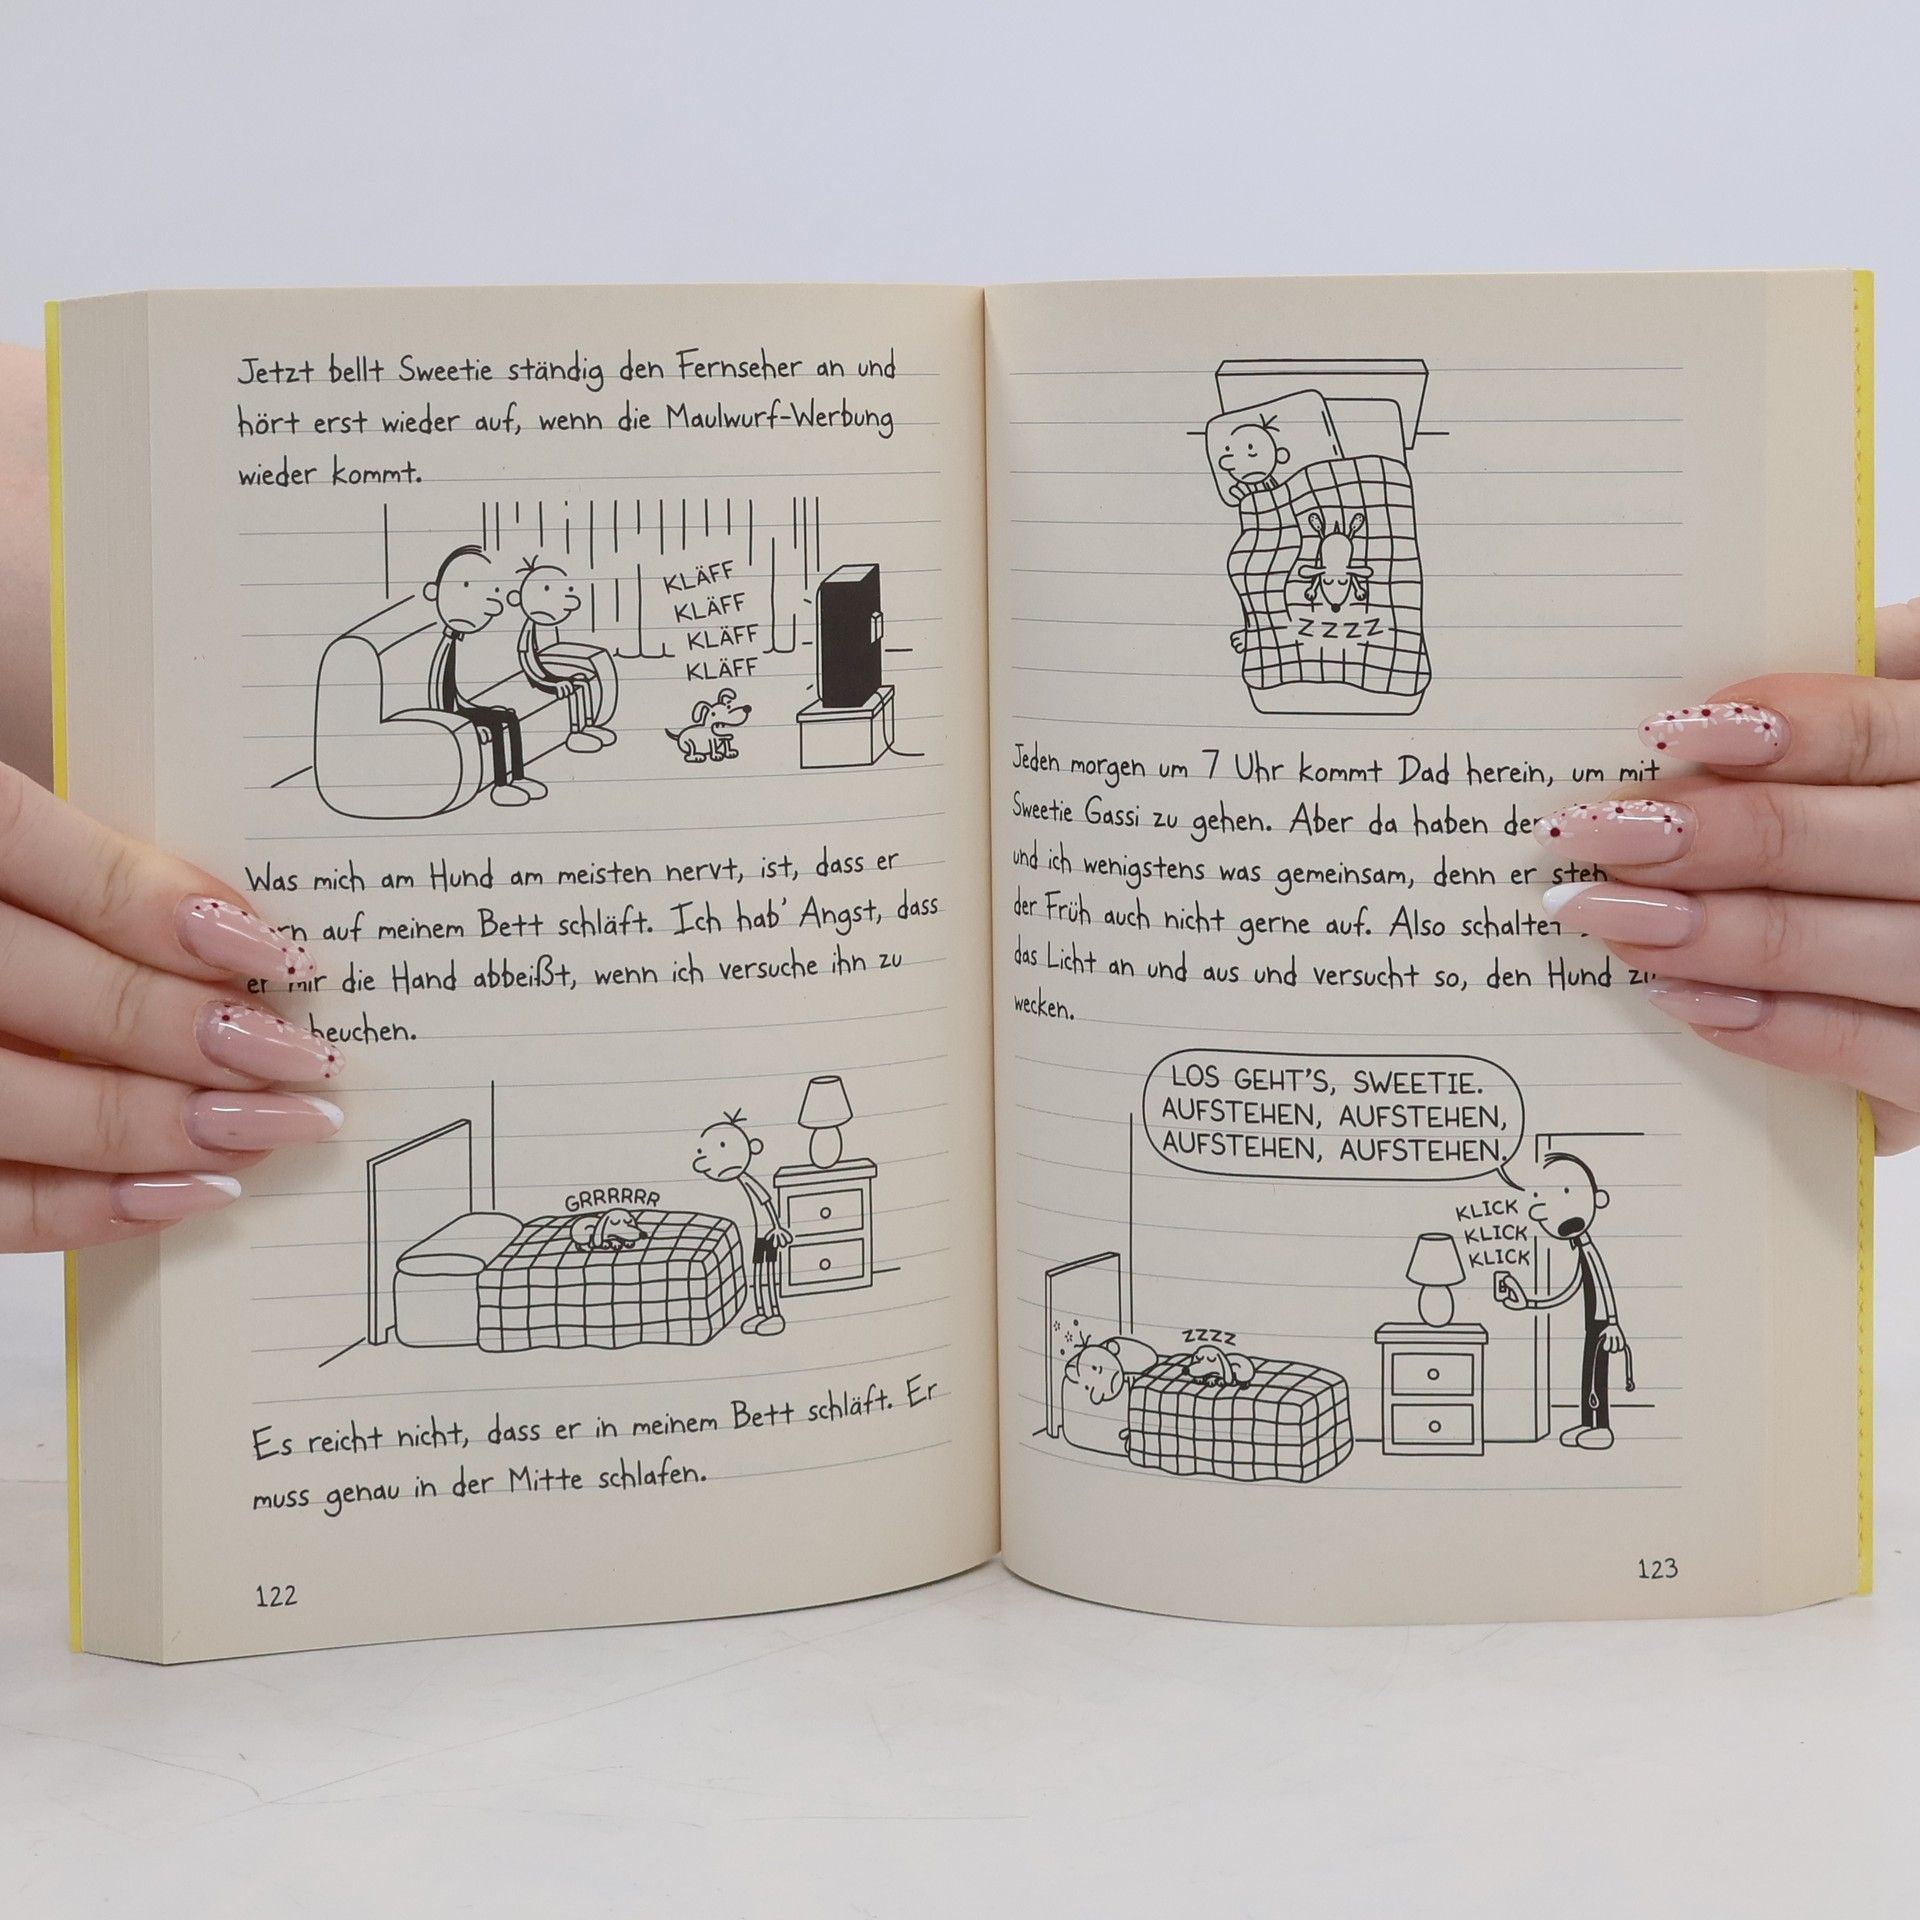 Jetzt bellt Sweetie ständig den Fernseher an und
hört erst wieder auf, wenn die Maulwurf-Werbung
wieder kommt.
KLÄFF
KLÄFF
KLÄFF
KLÄFF
Was mich am Hund am meisten nervt, ist, dass er
auf meinem Bett schläft. Ich hab' Angst, dass
er mir die Hand abbeißt, wenn ich versuche ihn zu
GRRRRRR
Es reicht nicht, dass er in meinem Bett schläft. Er
muss genau in der Mitte schlafen.
122
ZZZZ
Jeden morgen um 7 Uhr kommt Dad herein, um mit
Sweetie Gassi zu gehen. Aber da haben
und ich wenigstens was gemeinsam, denn er
der Früh auch nicht gerne auf. Also
das Licht an und aus und versucht so, den Hund zu
wecken.
LOS GEHT'S, SWEETIE.
AUFSTEHEN, AUFSTEHEN,
AUFSTEHEN, AUFSTEHEN.
KLICK
KLICK
KLICK
ZZZZ
123